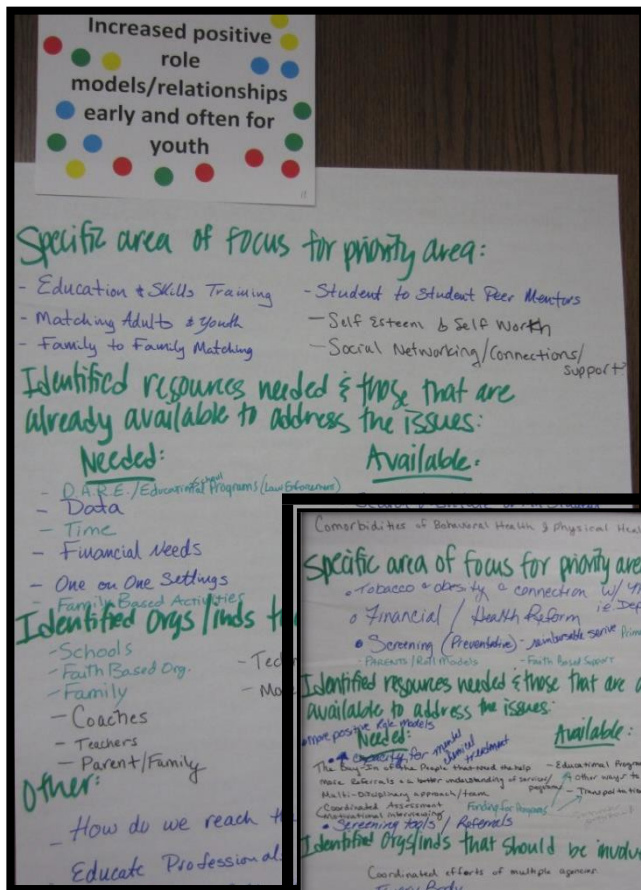 Increased positive
role
models/relationships
early and often for
youth
Specific area of focus for priority area:
- Education & Skills Training
- Matching Adults & Youth
- Family to Family Matching
- Student to Student Peer Mentors
- Self Esteem & Self Worth
- Social Networking/Connections/
support
Identified resources needed & those that are
already available to address the issues:
Needed:
- D.A.R.E./Educational school Programs (Law Enforcement)
- Data
- Time
- Financial Needs
- One on One Settings
- Family Based Activities
Available:
Identified Orgs/inds
- Schools
- Faith Based Org.
- Family
- Coaches
- Teachers
- Parent/Family
Other:
- How do we reach
Educate Professional
Comorbidities of Behavioral Health & Physical Heal
Specific area of focus for priority are
• Tobacco & obesity a connection w/
• Financial / Health Reform
• Screening (Preventative) - reimbursable
- PARENTS/Roll Models
- Faith Based Support
Identified resources needed & those that are a
available to address the issues:
• more positive Role models
Needed:
• capacity for mental
chemical
treatment
The Buy-In of the People that need the help
more Referrals & a better understanding of services/
programs
Multi-Disciplinary approach/team
Coordinated Assessment
motivational interviewing
• Screening tools / Referrals
Available:
- Educational Progra
other ways to
- Transportatio
Funding for Programs
Identified Orgs/inds that should be involv
Coordinated efforts of multiple agencies